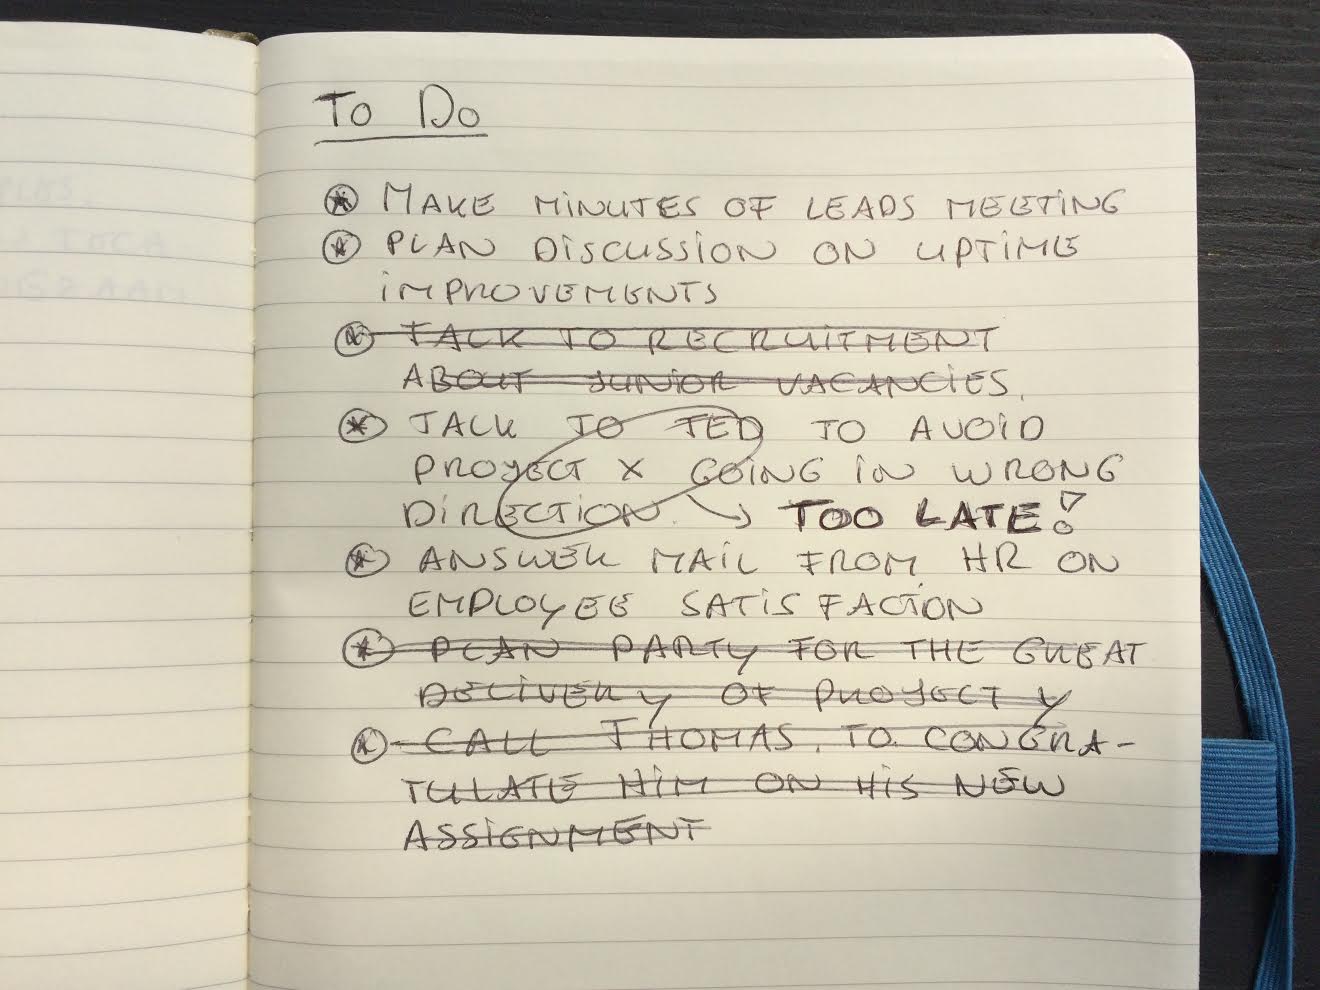 To Do
MAKE MINUTES OF LEADS MEETING
PLAN DISCUSSION ON UPTIME
IMPROVEMENTS
TALK TO RECRUITMENT
ABOUT JUNIOR VACANCIES.
TALK TO TED TO AVOID
PROJECT X GOING IN WRONG
DIRECTION. → TOO LATE!
ANSWER MAIL FROM HR ON
EMPLOYEE SATISFACTION
PLAN PARTY FOR THE GREAT
DELIVERY OF PROJECT Y
CALL THOMAS TO CONGRA-
TULATE HIM ON HIS NEW
ASSIGNMENT